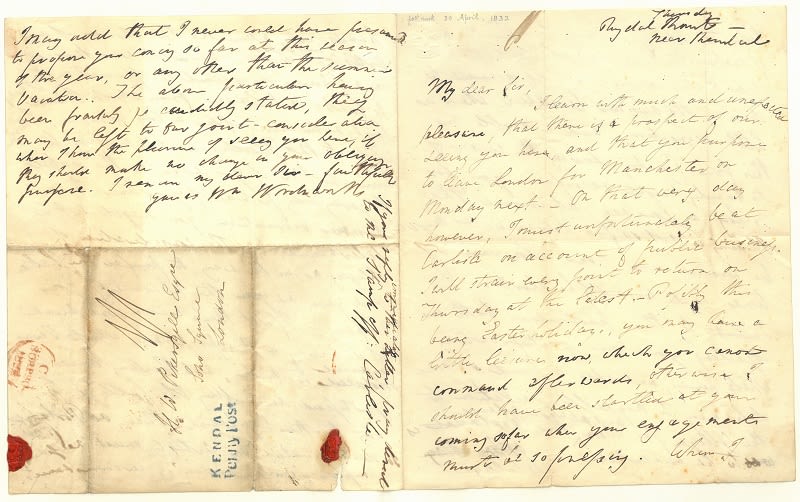 Thursday
Rydal Mount
near Kendal
My dear Sir,
I learn with much and unexpected
pleasure, that there is a prospect of our
seeing you here, and that you purpose
to leave London for Manchester on
Monday next – On that very day
however, I must unfortunately be at
Carlisle on account of public business.
I will strain every point to return on
Thursday at the latest. – Possibly this
being Easter holidays, you may have a
little leisure now, which you cannot
command afterwards, otherwise I
should have been startled at your
coming so far when your engagements
must be so pressing. When I
I may add that I never could have presumed
to propose your coming so far at this season
of the year, or any other than the summer
Vacation. The above particulars having
been frankly &
candidly stated, they
may be left to our joint-consideration
when I have the pleasure of seeing you here, if
they should make no change in your obliging
purpose. I am my dear Sir – faithfully
yours Wm Wordsworth
If you reply to this letter, pray direct
to me Stamp Off: Carlisle –
H. W. Pickersgill Esqre
Soho Square
London
KENDAL
Penny Post
postmark 20 April, 1832